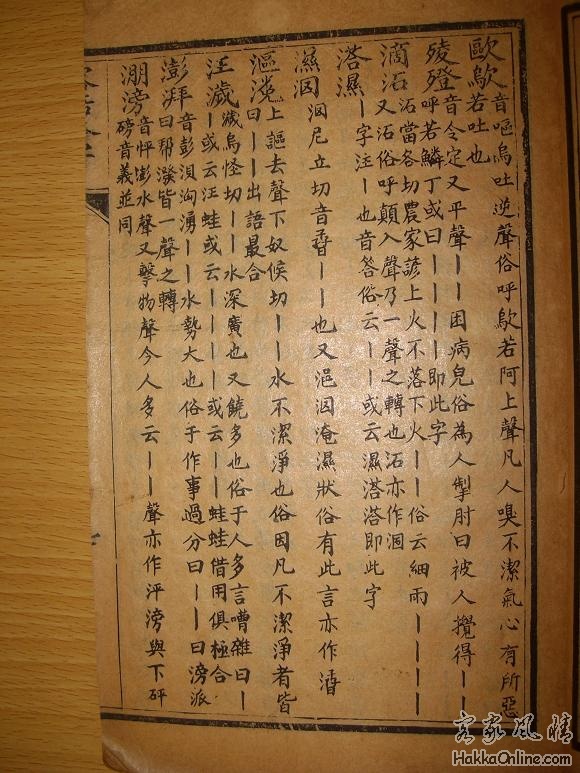 歐歍 音嘔烏吐逆聲俗呼歍若阿上聲凡人嗅不潔氣心有所惡
若吐也
音令定又平聲丨丨困病皃俗為人掣肘曰被人攪得丨丨
呼若鱗丁或曰丨丨丨丨即此字
滴沰 沰當各切農家諺上火不落下火丨丨俗云細雨丨丨丨丨
又沰俗呼顛入聲乃一聲之轉也沰亦作涸
溚濕 丨字注丨也音答俗云丨丨或云濕溚溚即此字
濕 尼立切音丨丨也又浥淹濕狀俗有此言亦作湆
漚 上謳去聲下奴候切丨丨水不潔淨也俗因凡不潔淨者皆
曰丨丨出語最合
汪濊 濊烏怪切丨丨水深廣也又饒多也俗于人多言嘈雜曰丨
丨或云汪蛙或云丨丨丨丨或云丨丨蛙蛙借用俱極合
澎拜 音彭洶湧丨丨水勢大也俗于作事過分曰丨丨曰滂派
曰帮潑皆一聲之轉
漰滂 音怦澎水聲又擊物聲今人多云丨丨聲亦作泙滂與下砰
磅音義並同
客家風情
HakkaOnline.com